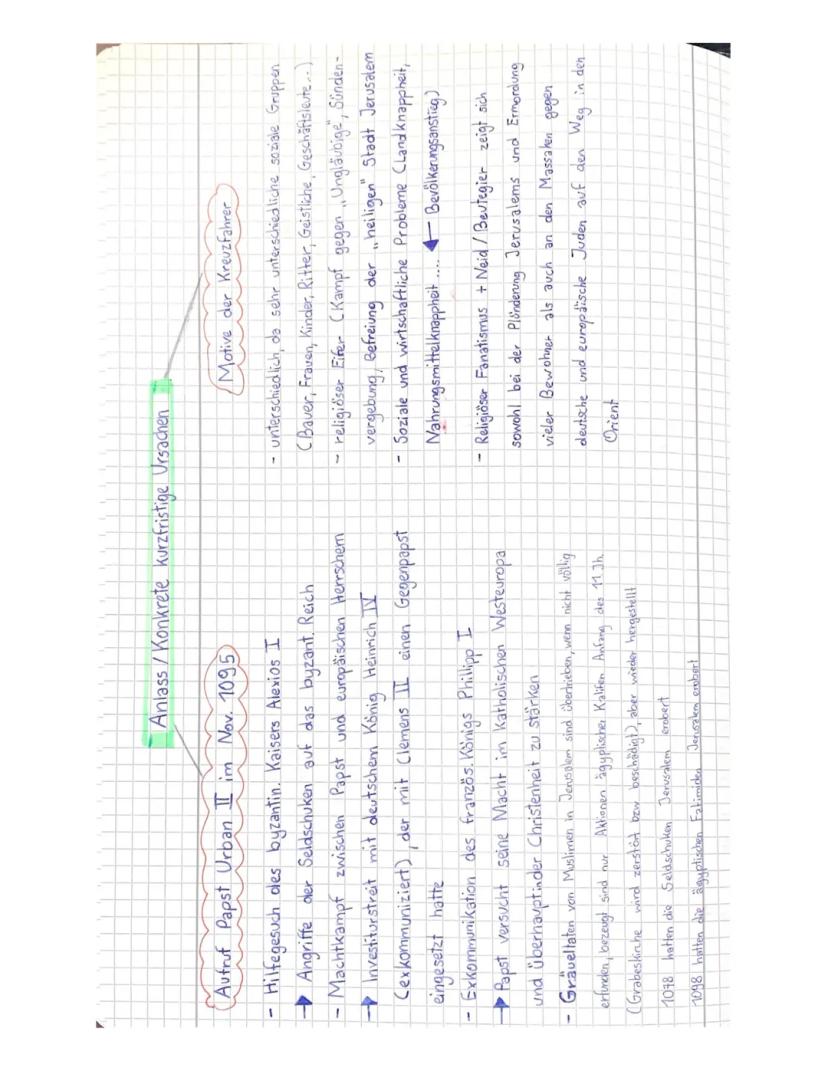 Anlass / Konkrete kurzfristige Ursachen
Aufruf Papst Urban II im Nov. 1095
- Hilfegesuch des byzantin. Kaisers Alexios I
→ Angriffe der Seldschuken auf das byzant. Reich
- Machtkampf zwischen Papst und europäischen Herrschern
→ Investiturstreit mit deutschem König Heinrich IV
(exkommuniziert), der mit Clemens II einen Gegenpapst
eingesetzt hatte
- Exkommunikation des französ. Königs Phillipp I
→ Papst versucht seine Macht im Katholischen Westeuropa
und überhaupt in der Christenheit zu stärken
- Gräueltaten von Muslimen in Jerusalem sind übertrieben, wenn nicht völlig
erfunden, bezeugt sind nur Aktionen ägyptischer Kalifen Anfang des 11 Jh.
(Grabeskirche wird zerstört bzw beschädigt), aber wieder hergestellt
1078 hatten die Seldschuken Jerusalem erobert
1098 hatten die ägyptischen Fatimiden Jerusalem erobert
Motive der Kreuzfahrer
- unterschiedlich, da sehr unterschiedliche soziale Gruppen
(Bauer, Frauen, Kinder, Ritter, Geistliche, Geschäftsleute...)
- religiöser Eifer (Kampf gegen „Ungläubige", Sünden-
vergebung, Befreiung der „heiligen" Stadt Jerusalem
- Soziale und wirtschaftliche Probleme (Landknappheit,
Nahrungsmittelknappheit .... ← Bevölkerungsanstieg)
- Religiöser Fanatismus + Neid / Beutegier zeigt sich
sowohl bei der Plünderung Jerusalems und Ermordung
vieler Bewohner als auch an den Massaken gegen
deutsche und europäische Juden auf den Weg in den
Orient